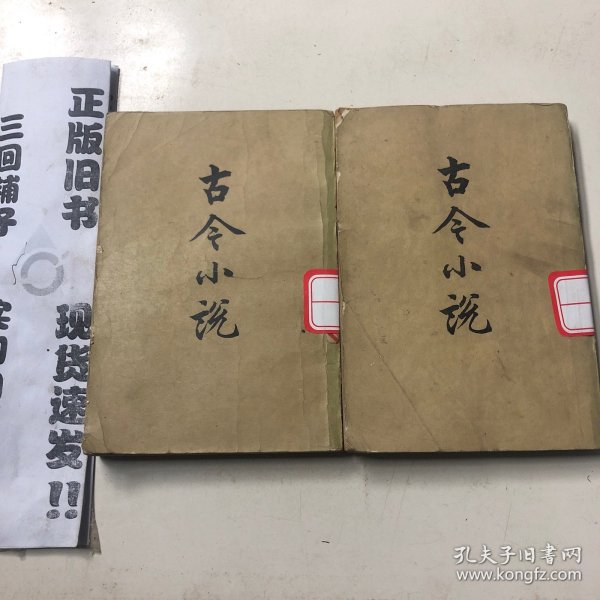 正版旧书
现货速发!!
三回铺子
古今小说
古今小说
孔夫子旧书网
www.kongfz.com